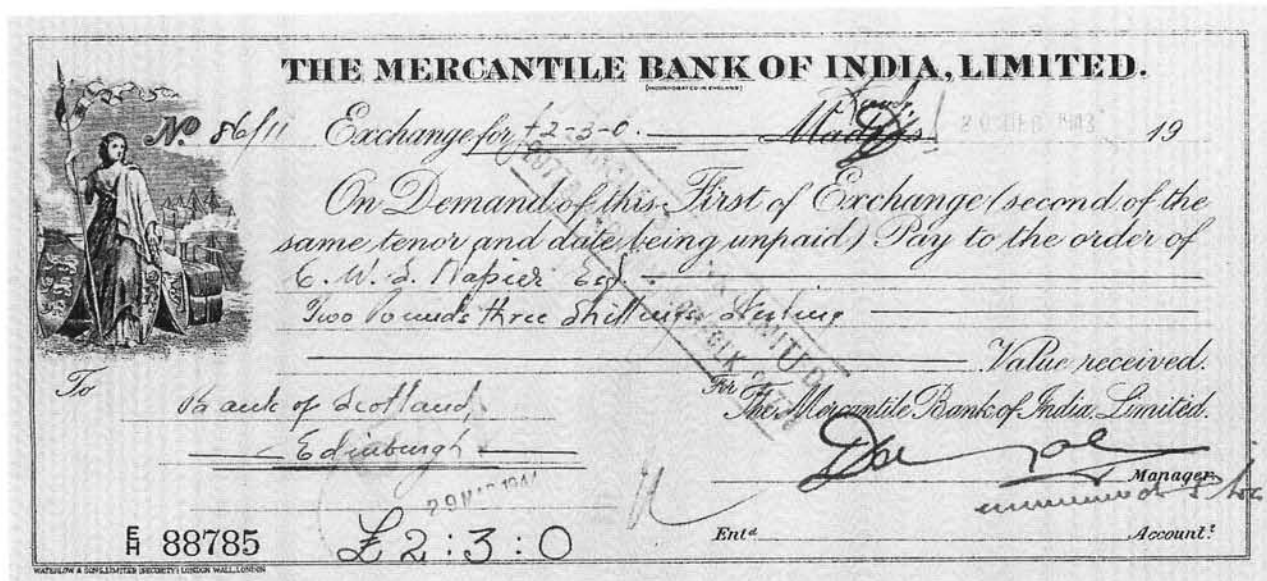 THE MERCANTILE BANK OF INDIA, LIMITED.
(INCORPORATED IN ENGLAND)
No. 86/11 Exchange for £2-3-0. Madras 19
On Demand of this First of Exchange (second of the
same tenor and date being unpaid) Pay to the order of
Napier Esq.
Two Pounds three Shillings Sterling
Value received.
To
Bank of Scotland,
Edinburgh
For The Mercantile Bank of India, Limited.
Manager
29 MAR 1944
E/H 88785
£2:3:0
Entd. Accountt.
WATERLOW & SONS LIMITED (SECURITY) LONDON WALL, LONDON